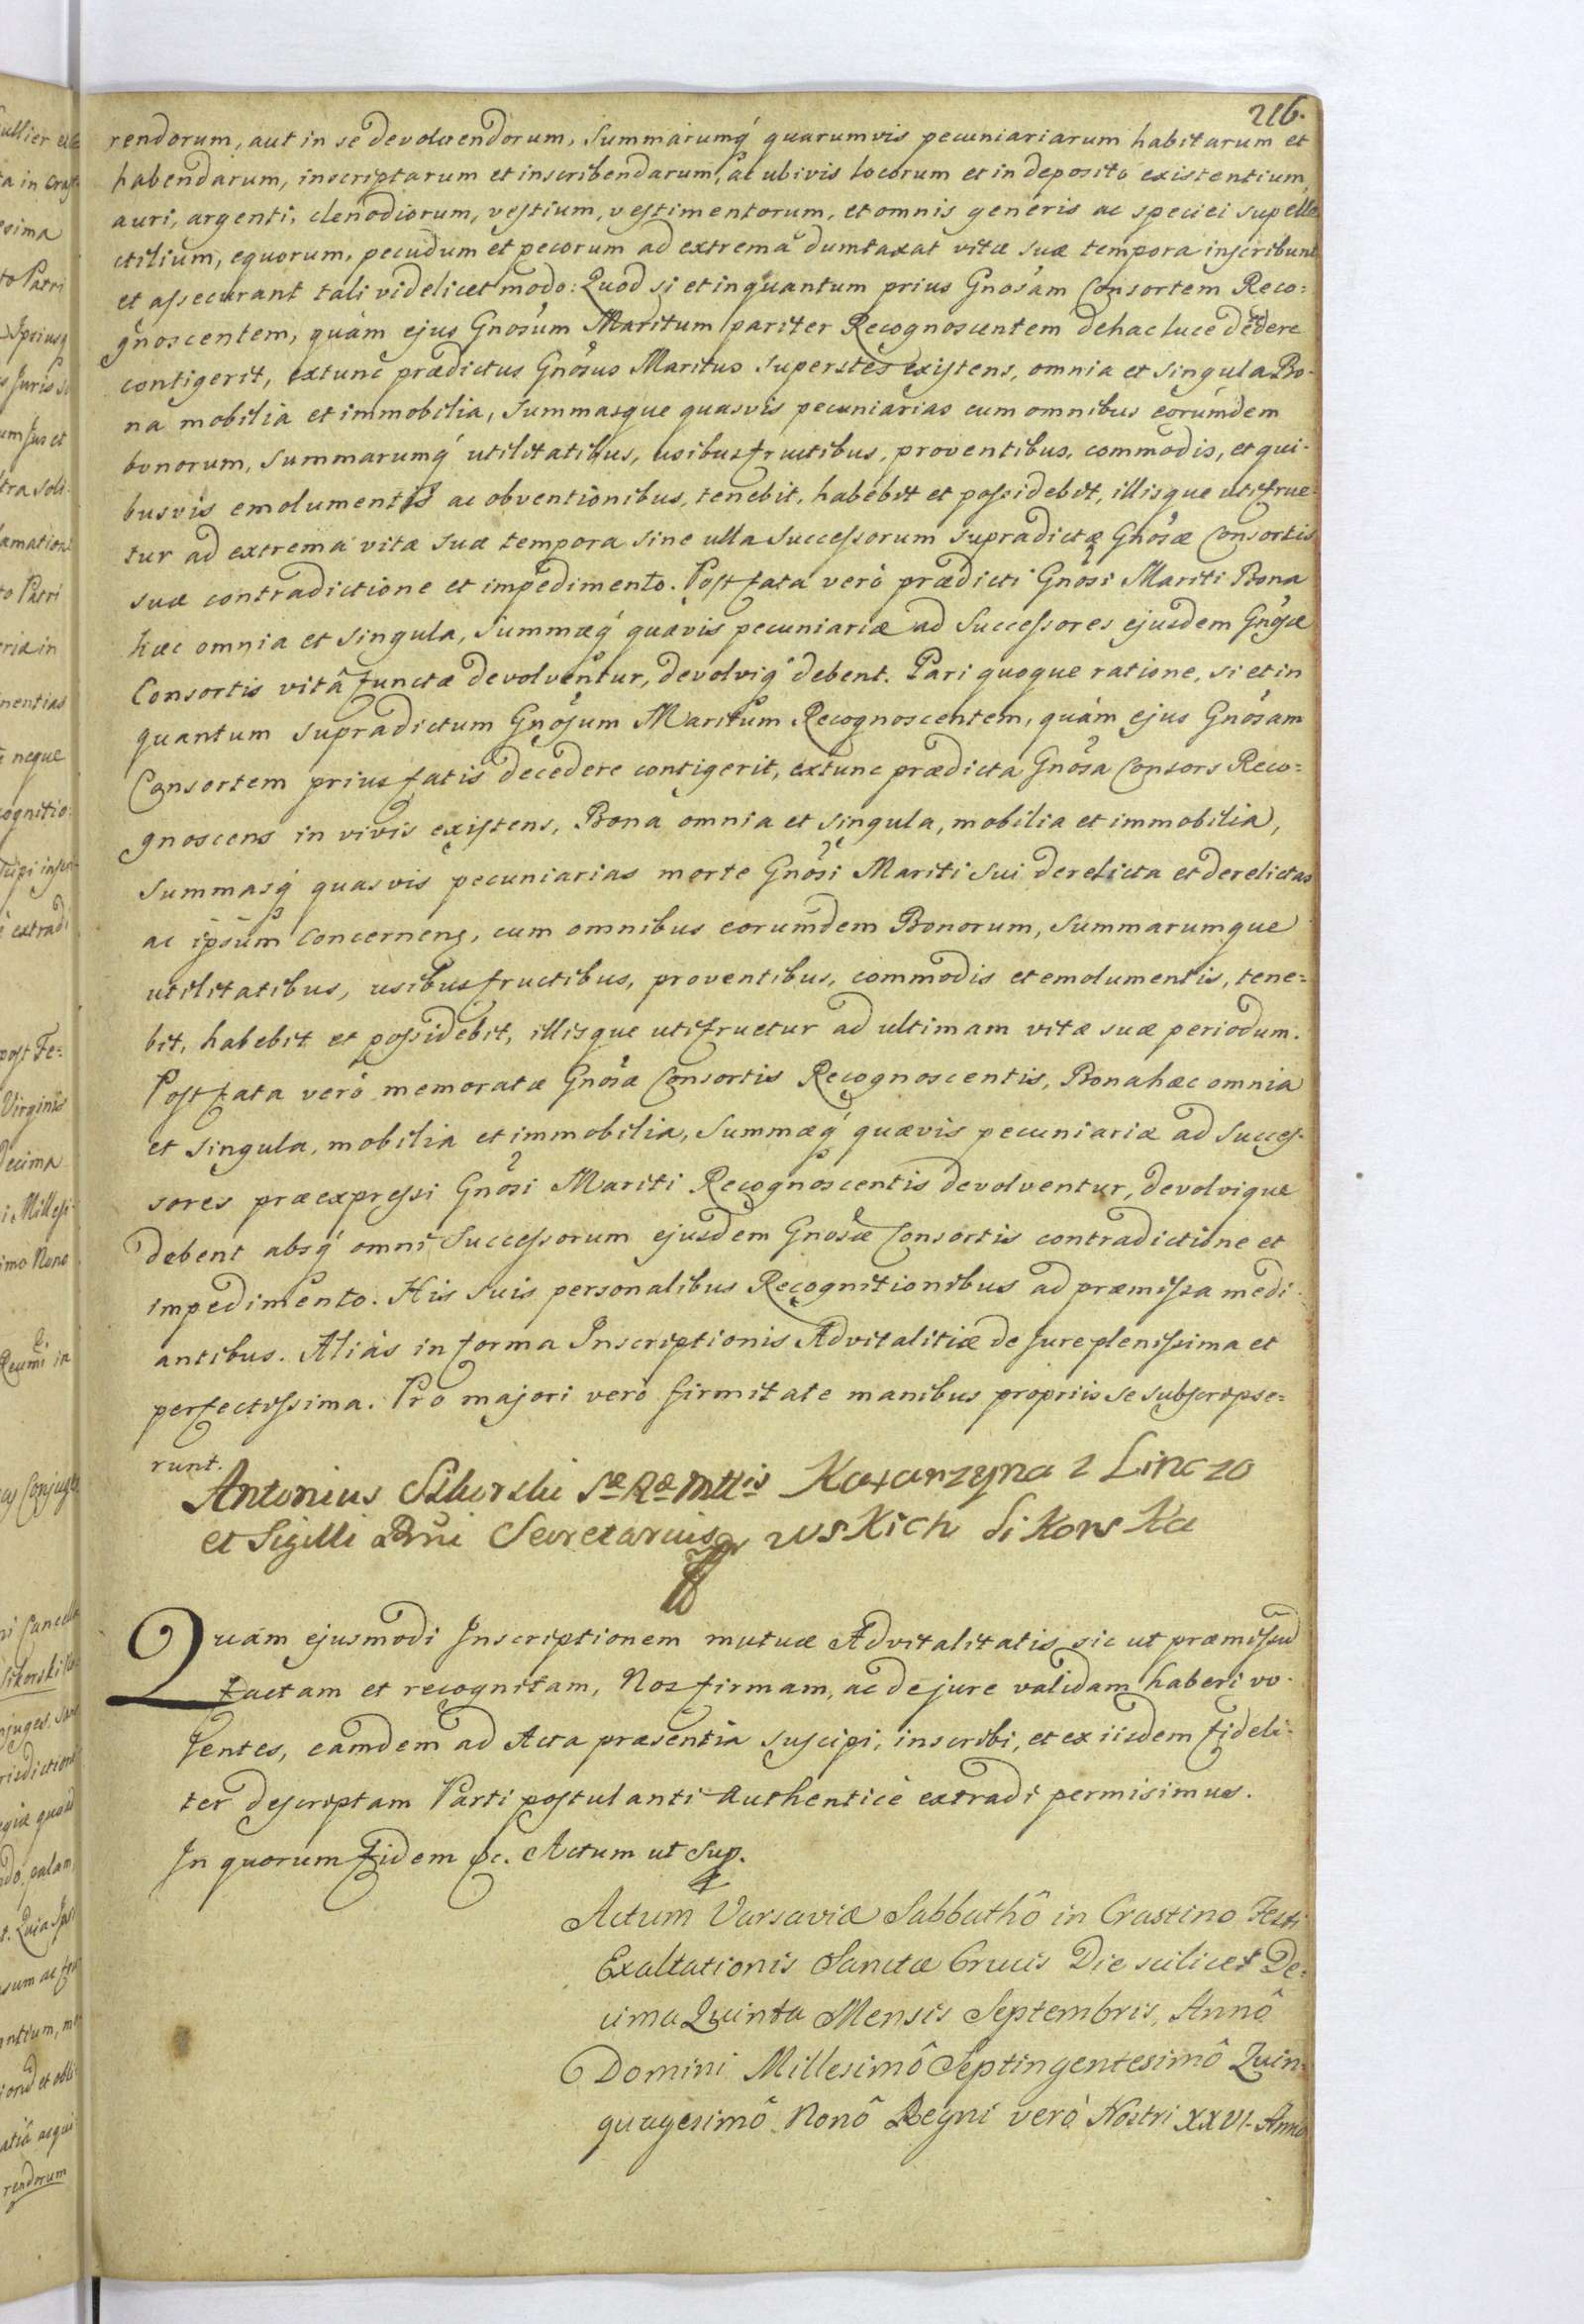 216.
rendorum, aut in se devolvendorum, Summarumq́ quarumvis pecuniariarum habitarum et
habendarum, inscriptarum et inscribendarum, ac ubivis locorum et in deposito existentium,
auri, argenti, clenodiorum, vestium, vestimentorum, et omnis generis ac speciei supelle
ctilium, equorum, pecudum et pecorum ad extrema dumtaxat vitæ suæ tempora inscribunt
et assecurant tali videlicet modo: Quod si et inquantum prius Gnosam Consortem Reco=
gnoscentem, quàm ejus Gnosum Maritum pariter Recognoscentem dehac luce dedere
contigerit, extunc prædictus Gnosus Maritus superstes existens, omnia et singula Bo-
na mobilia et immobilia, Summasque quasvis pecuniarias cum omnibus eorumdem
bonorum, Summarumq́ utilitatibus, usibusfructibus, proventibus, commodis, et qui-
busvis emolumentis ac obventionibus, tenebit, habebit et possidebit, illisque utifrue-
tur ad extrema vitæ suæ tempora sine ulla Successorum supradictæ Gnosæ Consortis
suæ contradictione et impedimento. Post fata verò prædicti Gnosi Mariti Bona
hæc omnia et singula, Summæq́ quævis pecuniariæ ad Successores ejusdem Gnosæ
Consortis vitâ functæ devolventur, devolviq́ debent. Pari quoque ratione, si et in
quantum supradictum Gnosum Maritum Recognoscentem, quàm ejus Gnosam
Consortem prius fatis decedere contigerit, extunc prædicta Gnosa Consors Reco=
gnoscens in vivis existens, Bona omnia et singula, mobilia et immobilia,
Summasq́ quasvis pecuniarias morte Gnosi Mariti sui derelicta et derelictas
ac ipsum concernens, cum omnibus eorumdem Bonorum, Summarumque
utilitatibus, usibusfructibus, proventibus, commodis et emolumentis, tene=
bit, habebit et possidebit, illisque utifruetur ad ultimam vitæ suæ periodum.
Post fata verò memoratæ Gnosæ Consortis Recognoscentis, Bona hæc omnia
et singula, mobilia et immobilia, Summæq́ quævis pecuniariæ ad Succes-
sores præexpressi Gnosi Mariti Recognoscentis devolventur, devolvique
debent absq́ omni Successorum ejusdem Gnosæ Consortis contradictione et
impedimento. His suis personalibus Recognitionibus ad præmissa medi-
antibus. Aliàs in forma Inscriptionis Advitalitiæ de jure plenissima et
perfectissima. Pro majori verò firmitate manibus propriis se subscripse=
runt.
Antonius Sikorski Sæ Ræ Mttis Katarzyna z Linczo
et Sigilli Secretarius wskich Sikorska
Quam ejusmodi Inscriptionem mutuæ Advitalitatis sic ut præmissũ
factam et recognitam, Nos firmam, ac de jure validam haberi vo-
lentes, eamdem ad Acta præsentia suscipi, inscribi, et ex iisdem fideli-
ter descriptam Parti postulanti Authenticè extradi permisimus.
In quorum fidem &c. Actum ut sup.
Actum Varsaviæ Sabbathô in Crastino Festi
Exaltationis Sanctæ Crucis Die scilicet De=
cima Quinta Mensis Septembris, Annô
Domini Millesimô Septingentesimô Quin=
quagesimô Nonô Regni verò Nostri XXVI. Anno